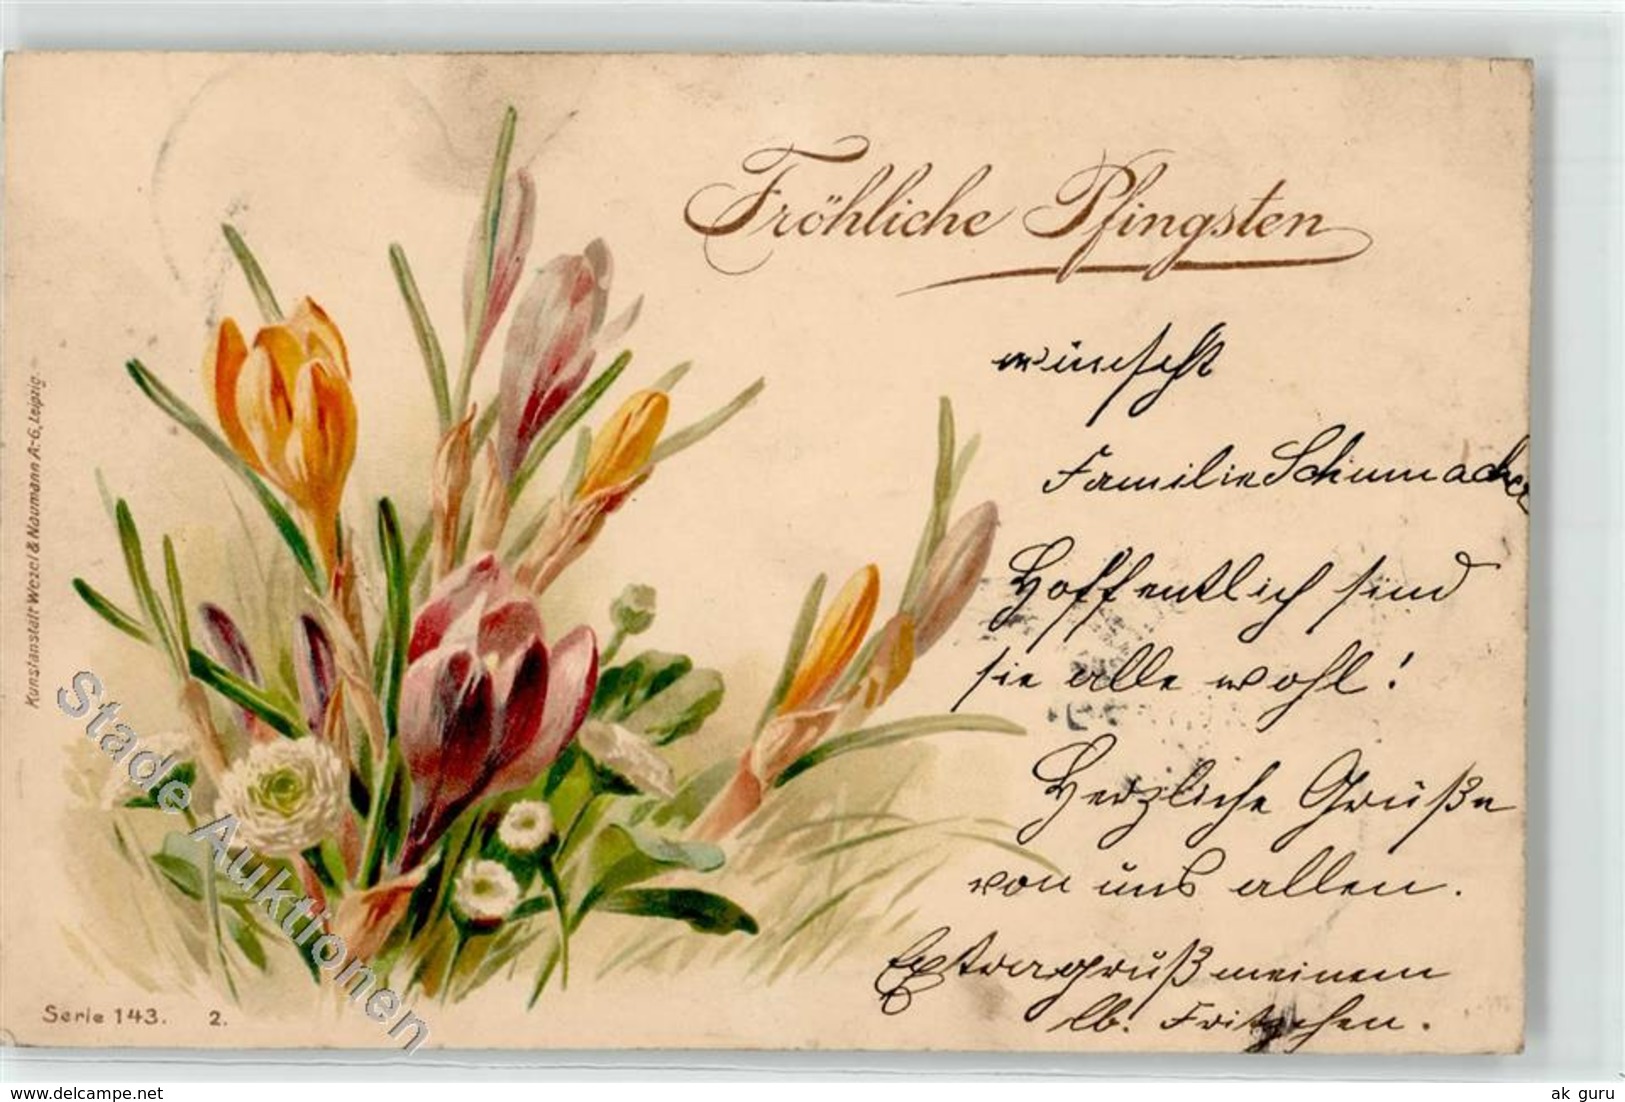 Fröhliche Pfingsten
wünscht
Familie Schumacher
Hoffentlich sind
sie alle wohl!
Herzliche Grüße
von uns allen.
Extragruß meinem
lb. Fritzchen.
Kunstanstalt Wezel & Naumann A.-G., Leipzig.
Serie 143. 2.
Stade Auktionen
www.delcampe.net
ak guru